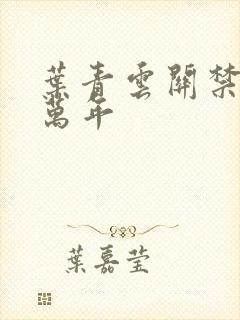 葉青雲開禁
萬年
葉嘉瑩